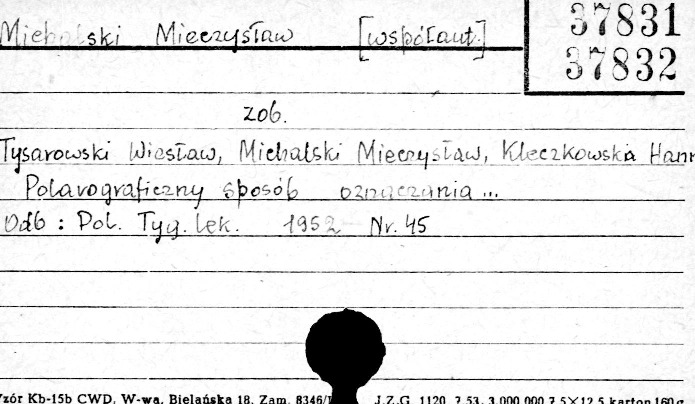 Michalski Mieczysław [współaut.]
37831
37832
zob.
Tysarowski Wiesław, Michalski Mieczysław, Kleczkowska Hann
Polarograficzny sposób oznaczania...
Odb: Pol. Tyg. lek. 1952 Nr. 45
Wzór Kb-15b CWD, W-wa, Bielańska 18. Zam. 8346/ J.Z.G. 1120 7.53. 3.000.000 7,5×12,5 karton 160 g